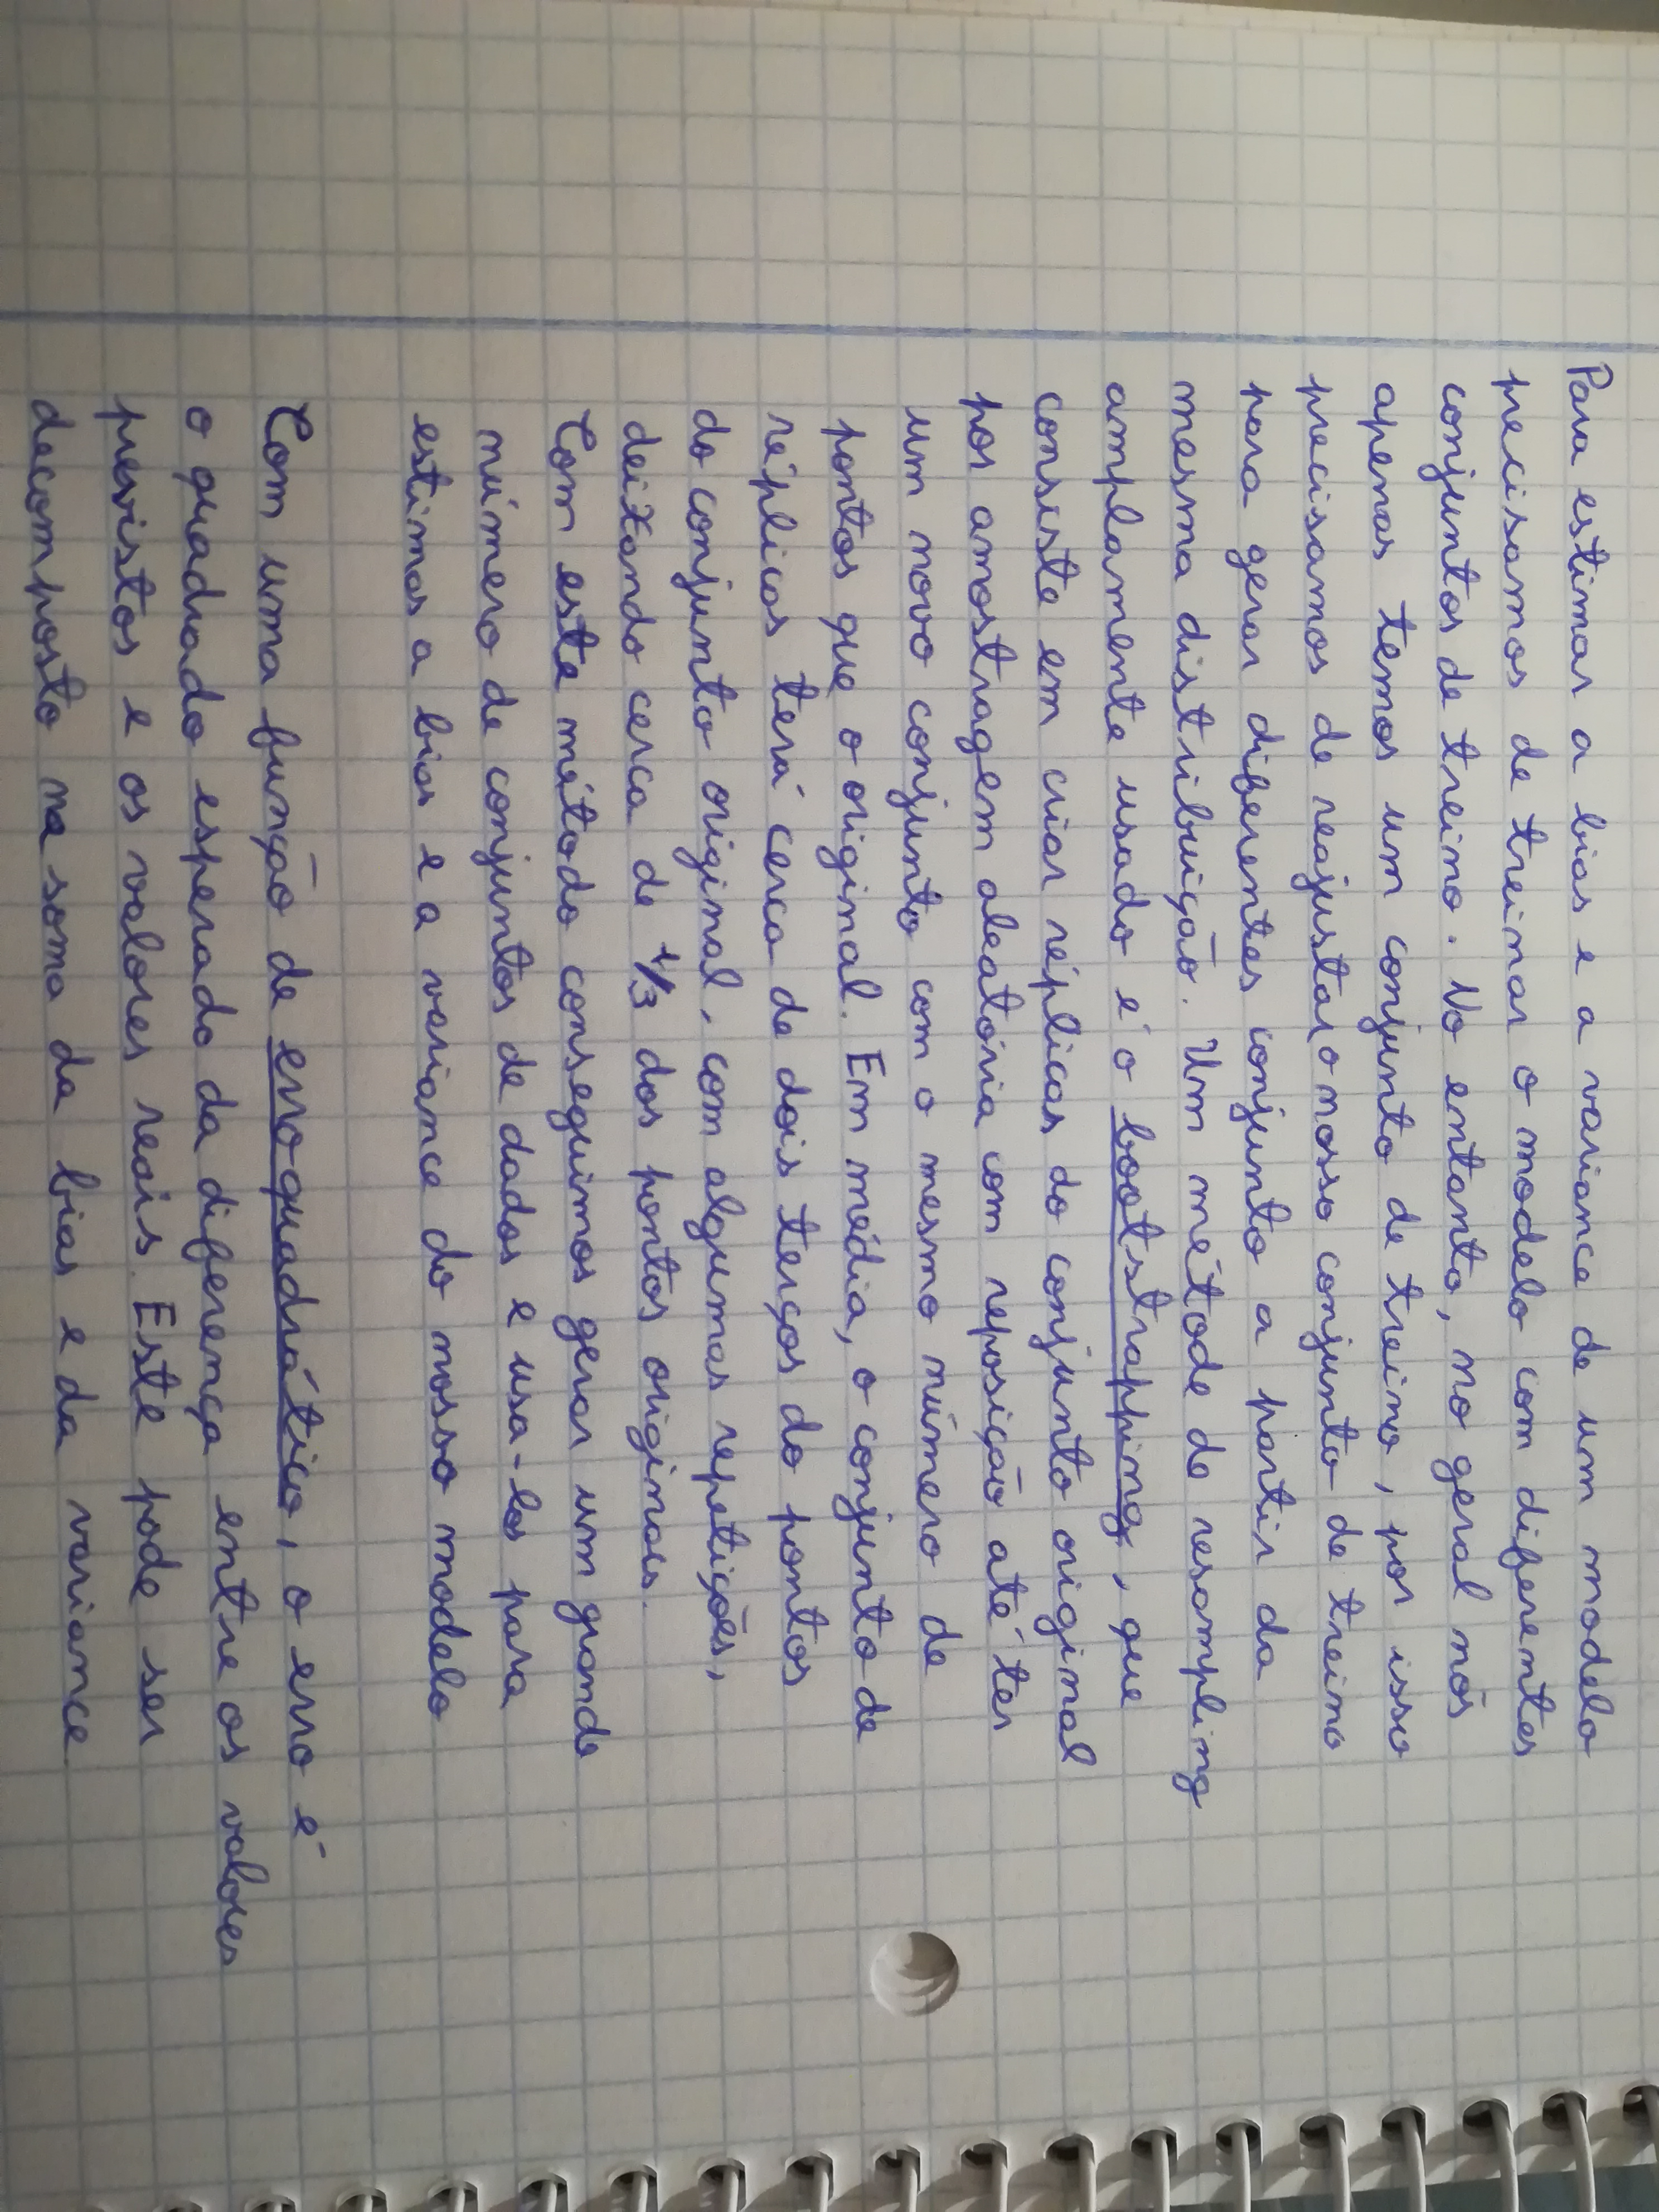 Para estimar a bias e a variance de um modelo
precisamos de treinar o modelo com diferentes
conjuntos de treino. No entanto, no geral nós
apenas temos um conjunto de treino, por isso
precisamos de reajustar o nosso conjunto de treino
para gerar diferentes conjunto a partir da
mesma distribuição. Um método de resampling
amplamente usado é o bootstrapping, que
consiste em criar réplicas do conjunto original
por amostragem aleatória com reposição até ter
um novo conjunto com o mesmo número de
pontos que o original. Em média, o conjunto de
réplicas terá cerca de dois terços do pontos
do conjunto original, com algumas repetições,
deixando cerca de 1/3 dos pontos originais.
Com este método conseguimos gerar um grande
número de conjuntos de dados e usa-los para
estimar a bias e a variance do nosso modelo
Com uma função de erro quadrático, o erro é
o quadrado esperado da diferença entre os valores
previstos e os valores reais. Este pode ser
decomposto na soma da bias e da variance